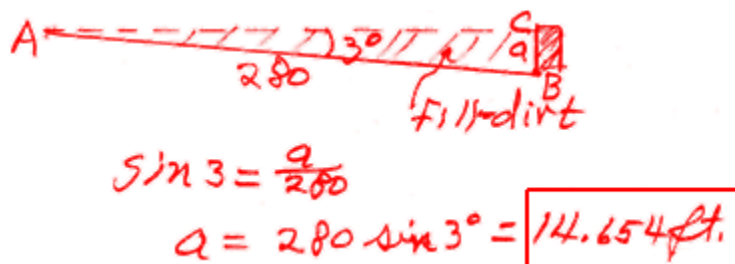 A 3° C
a
280 B
fill-dirt
sin 3 = a/280
a = 280 sin 3° = 14.654 ft.